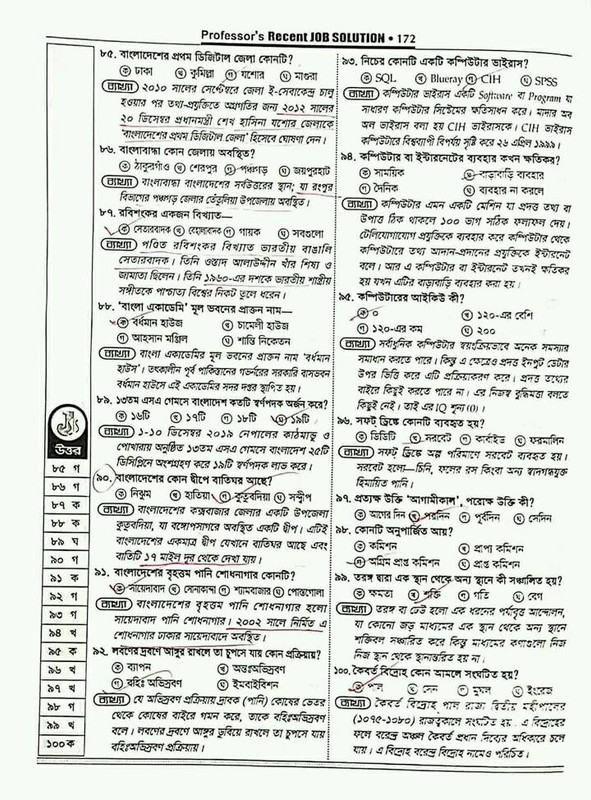 Professor's Recent JOB SOLUTION • 172
৮৫. বাংলাদেশের প্রথম ডিজিটাল জেলা কোনটি?
ক ঢাকা খ কুমিল্লা গ যশোর ঘ মাগুরা
ব্যাখ্যা ২০১০ সালের সেপ্টেম্বরে জেলা ই-সেবাকেন্দ্র চালু
হওয়ার পর তথ্য-প্রযুক্তিতে অগ্রগতির জন্য ২০১২ সালের
২০ ডিসেম্বর প্রধানমন্ত্রী শেখ হাসিনা যশোর জেলাকে
'বাংলাদেশের প্রথম ডিজিটাল জেলা' হিসেবে ঘোষণা দেন।
৮৬. বাংলাবান্ধা কোন জেলায় অবস্থিত?
ক ঠাকুরগাঁও খ শেরপুর গ পঞ্চগড় ঘ জয়পুরহাট
ব্যাখ্যা বাংলাবান্ধা বাংলাদেশের সর্বউত্তরের স্থান; যা রংপুর
বিভাগের পঞ্চগড় জেলার তেঁতুলিয়া উপজেলায় অবস্থিত।
৮৭. রবিশংকর একজন বিখ্যাত—
ক সেতারবাদক খ বেহালাবাদক গ গায়ক ঘ সবগুলো
ব্যাখ্যা পণ্ডিত রবিশংকর বিখ্যাত ভারতীয় বাঙালি
সেতারবাদক। তিনি ওস্তাদ আলাউদ্দীন খাঁর শিষ্য ও
জামাতা ছিলেন। তিনি ১৯৬০-এর দশকে ভারতীয় শাস্ত্রীয়
সঙ্গীতকে পাশ্চাত্য বিশ্বের নিকট তুলে ধরেন।
৮৮. 'বাংলা একাডেমি' মূল ভবনের প্রাক্তন নাম—
ক বর্ধমান হাউজ খ চামেলী হাউজ
গ আহসান মঞ্জিল ঘ শান্তি নিকেতন
ব্যাখ্যা বাংলা একাডেমির মূল ভবনের প্রাক্তন নাম 'বর্ধমান
হাউস'। তৎকালীন পূর্ব পাকিস্তানের গভর্নরের সরকারি বাসভবন
বর্ধমান হাউসে এই একাডেমির সদর দপ্তর স্থাপিত হয়।
৮৯. ১৩তম এসএ গেমসে বাংলাদেশ কতটি স্বর্ণপদক অর্জন করে?
ক ১৬টি খ ১৭টি গ ১৮টি ঘ ১৯টি
ব্যাখ্যা ১-১০ ডিসেম্বর ২০১৯ নেপালের কাঠমান্ডু ও
পোখারায় অনুষ্ঠিত ১৩তম এসএ গেমসে বাংলাদেশ ২৫টি
ডিসিপ্লিনে অংশগ্রহণ করে ১৯টি স্বর্ণপদক লাভ করে।
৯০. বাংলাদেশের কোন দ্বীপে বাতিঘর আছে?
ক নিঝুম খ হাতিয়া গ কুতুবদিয়া ঘ সন্দ্বীপ
ব্যাখ্যা বাংলাদেশের কক্সবাজার জেলার একটি উপজেলা
কুতুবদিয়া, যা বঙ্গোপসাগরে অবস্থিত একটি দ্বীপ। এটিই
বাংলাদেশের একমাত্র দ্বীপ যেখানে বাতিঘর আছে এবং
বাতিটি ১৭ মাইল দূর থেকে দেখা যায়।
৯১. বাংলাদেশের বৃহত্তম পানি শোধনাগার কোনটি?
ক সায়েদাবাদ খ সোনাকান্দা গ শ্যামবাজার ঘ পোস্তগোলা
ব্যাখ্যা বাংলাদেশের বৃহত্তম পানি শোধনাগার হলো
সায়েদাবাদ পানি শোধনাগার। ২০০২ সালে নির্মিত এ
শোধনাগার ঢাকার সায়েদাবাদে অবস্থিত।
৯২. লবণের দ্রবণে আঙ্গুর রাখলে তা চুপসে যায় কোন প্রক্রিয়ায়?
ক ব্যাপন খ অন্তঃঅভিস্রবণ
গ বহিঃ অভিস্রবণ ঘ ইমবাইবিশন
ব্যাখ্যা যে অভিস্রবণ প্রক্রিয়ায় দ্রাবক (পানি) কোষের ভেতর
থেকে কোষের বাইরে গমন করে, তাকে বহিঃঅভিস্রবণ
বলে। লবণের দ্রবণে আঙ্গুর ডুবিয়ে রাখলে তা চুপসে যায়
বহিঃঅভিস্রবণ প্রক্রিয়ায়।
উত্তর
৮৫ গ
৮৬ গ
৮৭ ক
৮৮ ক
৮৯ ঘ
৯০ গ
৯১ ক
৯২ গ
৯৩ গ
৯৪ খ
৯৫ ক
৯৬ খ
৯৭ খ
৯৮ গ
৯৯ খ
১০০ ক
৯৩. নিচের কোনটি একটি কম্পিউটার ভাইরাস?
ক SQL খ Blueray গ CIH ঘ SPSS
ব্যাখ্যা কম্পিউটার ভাইরাস একটি Software বা Program যা
সাধারণ কম্পিউটার সিস্টেমের ক্ষতিসাধন করে। মাদার অব
অল ভাইরাস বলা হয় CIH ভাইরাসকে। CIH ভাইরাস
কম্পিউটারে বিশ্বব্যাপী বিপর্যয় সৃষ্টি করে ২৬ এপ্রিল ১৯৯৯।
৯৪. কম্পিউটার বা ইন্টারনেটের ব্যবহার কখন ক্ষতিকর?
ক সাময়িক খ বাড়াবাড়ি ব্যবহার
গ দৈনিক ঘ ব্যবহার না করলে
ব্যাখ্যা কম্পিউটার এমন একটি মেশিন যা প্রদত্ত তথ্য বা
উপাত্ত ঠিক থাকলে ১০০ ভাগ সঠিক ফলাফল দেয়।
টেলিযোগাযোগ প্রযুক্তিকে ব্যবহার করে কম্পিউটার থেকে
কম্পিউটারে তথ্য আদান-প্রদানের প্রযুক্তিকে ইন্টারনেট
বলে। আর এ কম্পিউটার বা ইন্টারনেট তখনই ক্ষতিকর
হয় যখন এটির বাড়াবাড়ি ব্যবহার করা হয়।
৯৫. কম্পিউটারের আইকিউ কী?
ক ০ খ ১২০-এর বেশি
গ ১২০-এর কম ঘ ২০০
ব্যাখ্যা সর্বাধুনিক কম্পিউটার স্বয়ংক্রিয়ভাবে অনেক সমস্যার
সমাধান করতে পারে। কিন্তু এ ক্ষেত্রেও প্রদত্ত ইনপুট ডেটার
উপর ভিত্তি করে এটি প্রক্রিয়াকরণ করে। প্রদত্ত তথ্যের
বাইরে কিছুই করতে পারে না। এর নিজস্ব বুদ্ধিমত্তা বলতে
কিছুই নেই। তাই এর IQ শূন্য (0)।
৯৬. সফট্ ড্রিঙ্কে কোনটি ব্যবহৃত হয়?
ক ডিডিটি খ সরবেট গ কার্বাইড ঘ ফরমালিন
ব্যাখ্যা সফট্ ড্রিঙ্কে অল্প পরিমাণে সরবেট ব্যবহৃত হয়।
সরবেট হলো—চিনি, ফলের রস কিংবা অন্য স্বাদগন্ধযুক্ত
হিমায়িত পানি।
৯৭. প্রত্যক্ষ উক্তি 'আগামীকাল', পরোক্ষ উক্তি কী?
ক আগের দিন খ পরদিন গ পূর্বদিন ঘ সেদিন
৯৮. কোনটি অনুপার্জিত আয়?
ক কমিশন খ প্রাপ্য কমিশন
গ অগ্রিম প্রাপ্ত কমিশন ঘ প্রাপ্ত কমিশন
৯৯. তরঙ্গ দ্বারা এক স্থান থেকে অন্য স্থানে কী সঞ্চালিত হয়?
ক ক্ষমতা খ শক্তি গ গতি ঘ বেগ
ব্যাখ্যা তরঙ্গ বা ঢেউ হলো এক ধরনের পর্যাবৃত্ত আন্দোলন,
যা কোনো জড় মাধ্যমের এক স্থান থেকে অন্য স্থানে
শক্তিবল সঞ্চারিত করে কিন্তু মাধ্যমের কণাগুলো নিজ
নিজ স্থান থেকে স্থানান্তরিত হয় না।
১০০. কৈবর্ত বিদ্রোহ কোন আমলে সংঘটিত হয়?
ক পাল খ সেন গ মুঘল ঘ ইংরেজ
ব্যাখ্যা কৈবর্ত বিদ্রোহ পাল রাজা দ্বিতীয় মহীপালের
(১০৭৫-১০৮০) রাজত্বকালে সংঘটিত হয়। এ বিদ্রোহের
ফলে বরেন্দ্র অঞ্চল কৈবর্ত প্রধান দিব্যের অধিকারে চলে
যায়। এ বিদ্রোহ বরেন্দ্র বিদ্রোহ নামেও পরিচিত।